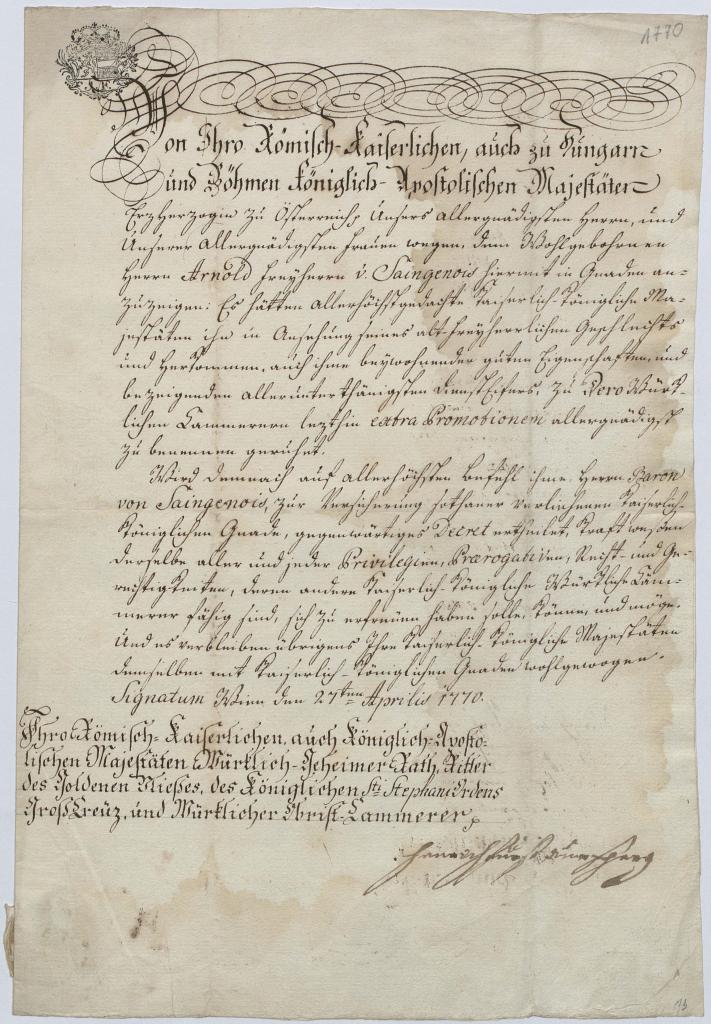 1770
Von Ihro Römisch-Kaiserlichen, auch zu Hungarn
und Böhmen Königlich-Apostolischen Majestäten
Erzherzogin zu Österreich, Unsers allergnädigsten Herrn, und
Unserer allergnädigsten Frauen wegen, dem Wohlgebohrnen
Herrn Arnold Freyherrn v. Saingenois hiermit in Gnaden an-
zuzeigen: Es hätten allerhöchstgedachte Kaiserlich-Königliche Ma-
jestäten ihn in Ansehung seines alt-freyherrlichen Geschlechts
und Herkommen, auch ihme beywohnender guten Eigenschaften, und
bezeigenden allerunterthänigsten Diensteifers, zu Dero Würk-
lichen Cammerern lezthin extra Promotionem allergnädigst
zu benennen geruhet.
Wird demnach auf allerhöchsten Befehl ihme Herrn Baron
von Saingenois, zur Versicherung sothaner verliehenen Kaiserlich-
Königlichen Gnade, gegenwärtiges Decret ertheilet, Kraft wessen
derselbe aller und jeder Privilegien, Prærogativen, Recht- und Ge-
rechtigkeiten, deren andere Kaiserlich-Königliche Würkliche Cäm-
merer fähig sind, sich zu erfreuen haben solle, könne, und möge.
Und es verbleiben übrigens Ihre Kaiserlich-Königliche Majestäten
demselben mit Kaiserlich-Königlichen Gnaden wohlgewogen.
Signatum Wien den 27ten Aprilis 1770.
Ihro Römisch-Kaiserlichen, auch Königlich-Aposto-
lischen Majestäten Würklich-Geheimer Rath, Ritter
des Goldenen Vliesses, des Königlichen Sti Stephani Ordens
Groß Creüz, und Würklicher Obrist-Cammerer